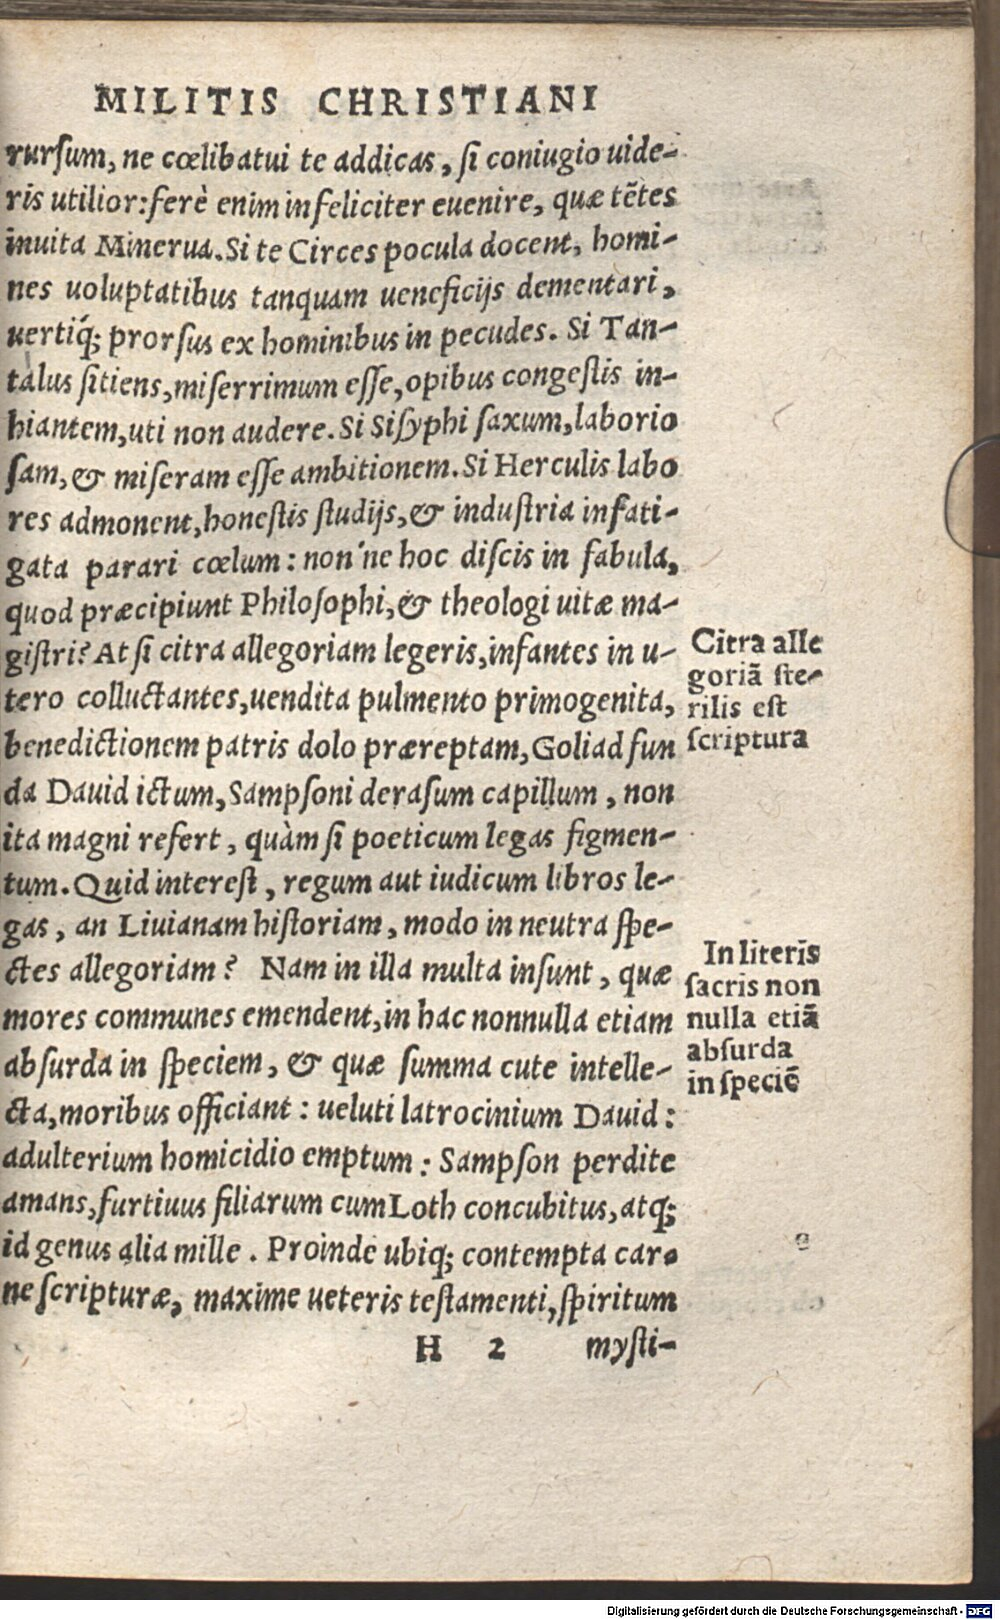 MILITIS CHRISTIANI
rursum, ne cœlibatui te addicas, si coniugio uide-
ris utilior: ferè enim infeliciter euenire, quæ tētes
inuita Minerua. Si te Circes pocula docent, homi-
nes uoluptatibus tanquam ueneficijs dementari,
uertiq́; prorsus ex hominibus in pecudes. Si Tan-
talus sitiens, miserrimum esse, opibus congestis in-
hiantem, uti non audere. Si Sisyphi saxum, laborio
sam, & miseram esse ambitionem. Si Herculis labo
res admonent, honestis studijs, & industria infati-
gata parari cœlum: non'ne hoc discis in fabula,
quod præcipiunt Philosophi, & theologi uitæ ma-
gistri? At si citra allegoriam legeris, infantes in u-
tero colluctantes, uendita pulmento primogenita,
benedictionem patris dolo præreptam, Goliad fun
da Dauid ictum, Sampsoni derasum capillum, non
ita magni refert, quàm si poeticum legas figmen-
tum. Quid interest, regum aut iudicum libros le-
gas, an Liuianam historiam, modo in neutra spe-
ctes allegoriam? Nam in illa multa insunt, quæ
mores communes emendent, in hac nonnulla etiam
absurda in speciem, & quæ summa cute intelle-
cta, moribus officiant: ueluti latrocinium Dauid:
adulterium homicidio emptum: Sampson perdite
amans, furtiuus filiarum cum Loth concubitus, atq;
id genus alia mille. Proinde ubiq; contempta car-
ne scripturæ, maxime ueteris testamenti, spiritum
H 2 mysti-
Citra alle
goriā ste-
rilis est
scriptura
In literis
sacris non
nulla etiā
absurda
in speciē
Digitalisierung gefördert durch die Deutsche Forschungsgemeinschaft - DFG